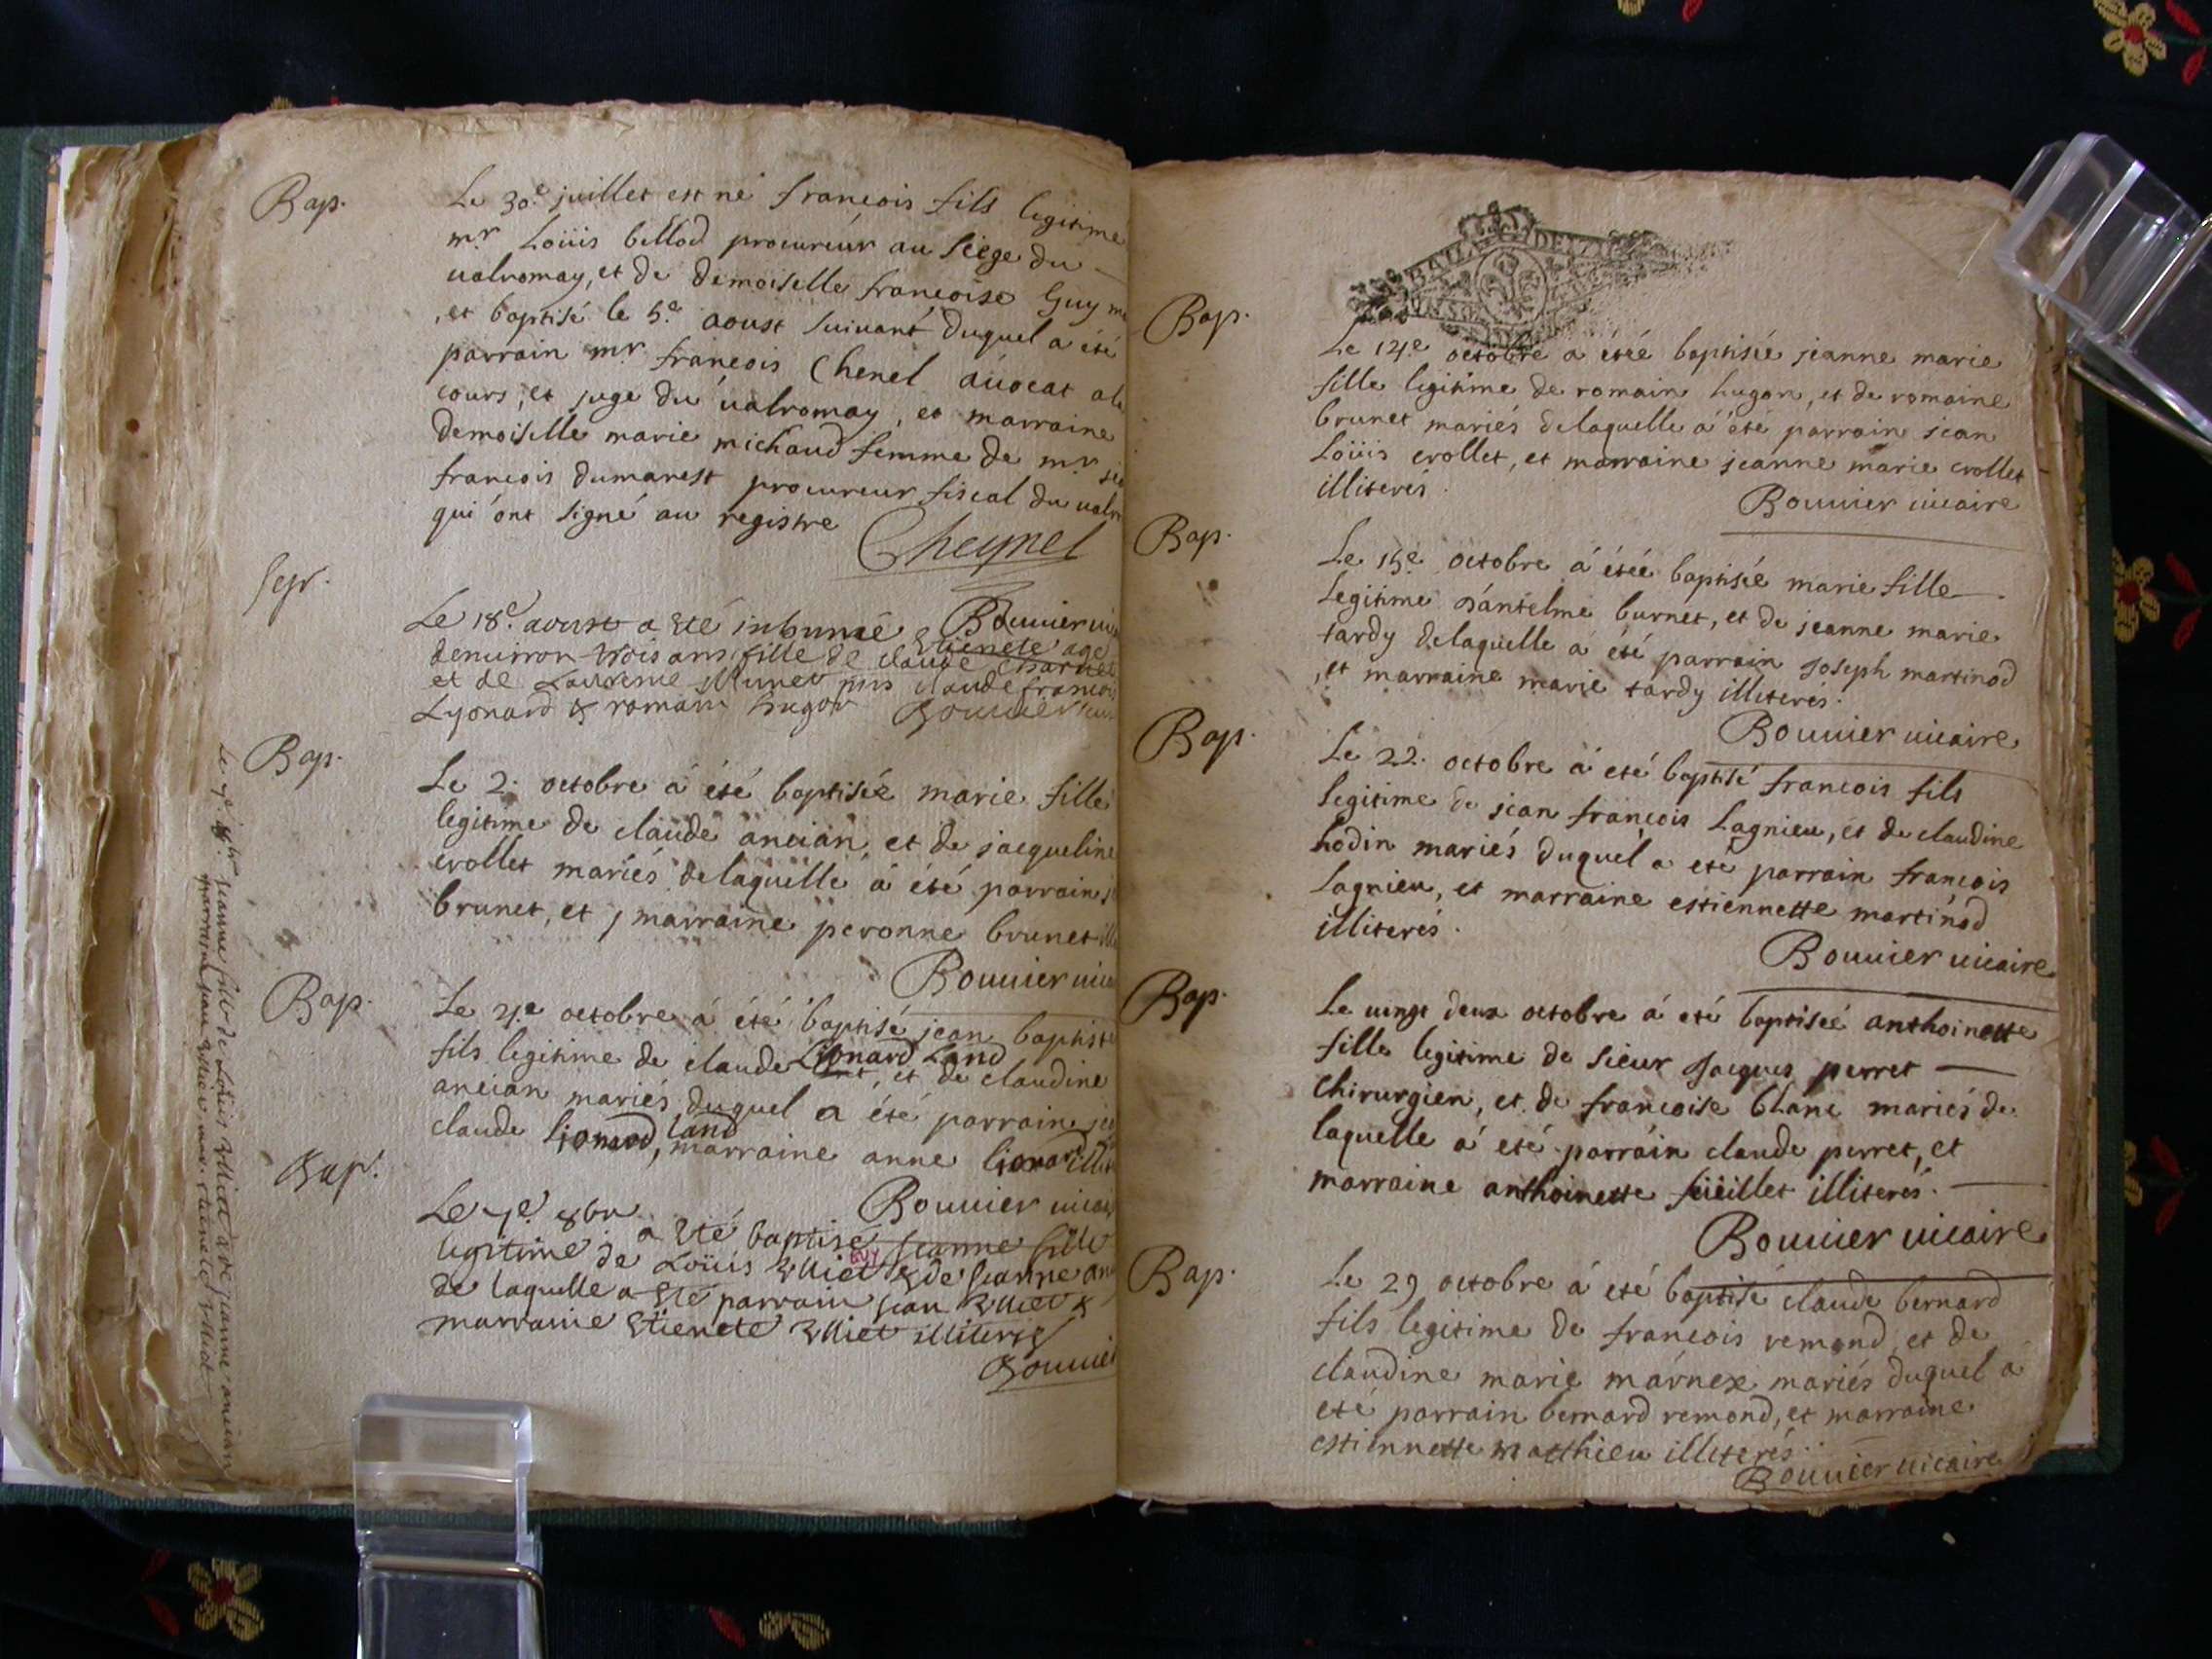 Bap.
Le 30.e juillet est né francois fils legitime
m.r Loüis bellod procureur au siege du
valromay, et de demoiselle francoise Guy
, et baptisé le 5.e aoust suivant duquel a été
parrain m.r francois Chenel avocat
cours, et juge du valromay, et marraine
demoiselle marie michaud femme de m.r
francois dumarest procureur fiscal du
qui ont signé au registre
Cheynel
Sepr.
Bouuier
Le 18.e aoust a Eté inhumée Etienete age
denuiron trois ans fille de claude
et de claude francois
Lyonard & romain hugon Bouuier
Bap.
Le 2. octobre á été baptisée marie fille
legitime de claude ancian et de jacqueline
crollet mariés delaquelle á été parrain
brunet, et marraine peronne brunet
Bouuier
Bap.
Le 4.e octobre á été baptisé jean baptiste
fils legitime de claude Lionard Land, et de claudine
ancian mariés duquel a été parrain
claude lionard land, marraine anne lionard
Bouuier
Bap.
Le 7e. 8bre a Eté baptisé Jeanne fille
legitime de Loüis Elliet & de Jeanne
Guy
de laquelle a Eté parrain Jean Elliet &
marraine Etienete Elliet illiterés
Bouuier
Le 7e. 8br. jeanne fille de Loüis Elliet & de jeanne ancian
parrain jean Elliet mar. etienete Elliet
Bap.
Le 14.e octobre a étéé baptisée jeanne marie
fille legitime de romain hugon, et de romaine
brunet mariés delaquelle á été parrain jean
Loüis crollet, et marraine jeanne marie crollet
illiterés.
Bouuier uicaire
Bap.
Le 15.e octobre á étéé baptisée marie fille
legitime d'antelme burnet, et de jeanne marie
tardy delaquelle á été parrain joseph martinod
, et marraine marie tardy illiterés.
Bouuier uicaire
Bap.
Le 22. octobre á eté baptisé francois fils
legitime de jean francois Lagnieu, et de claudine
hodin mariés duquel a eté parrain francois
Lagnieu, et marraine estiennette martinod
illiterés.
Bouuier uicaire
Bap.
Le uingt deux octobre á eté baptiseé anthoinette
fille legitime de sieur jacques perret
chirurgien, et de francoise blanc mariés de
laquelle á eté parrain claude perret, et
marraine anthoinette feüillet illiterés.
Bouuier uicaire
Bap.
Le 29 octobre á eté baptisé claude bernard
fils legitime de francois remond, et de
claudine marie márnex mariés duquel á
eté parrain bernard remond, et marraine
estiennette matthieu illiterés.
Bouuier uicaire